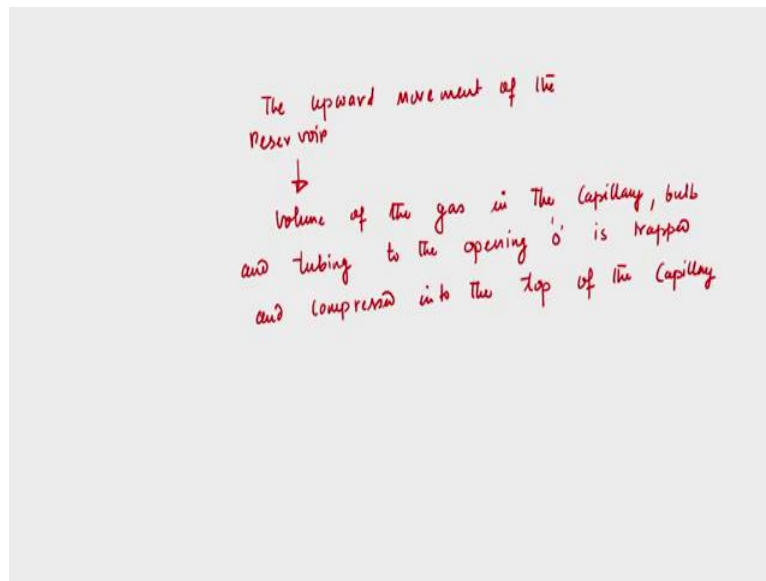 The upward movement of the
Reservoir
↓
Volume of the gas in The Capillary, bulb
and tubing to the opening 'o' is trapped
and compressed into the top of the Capillary